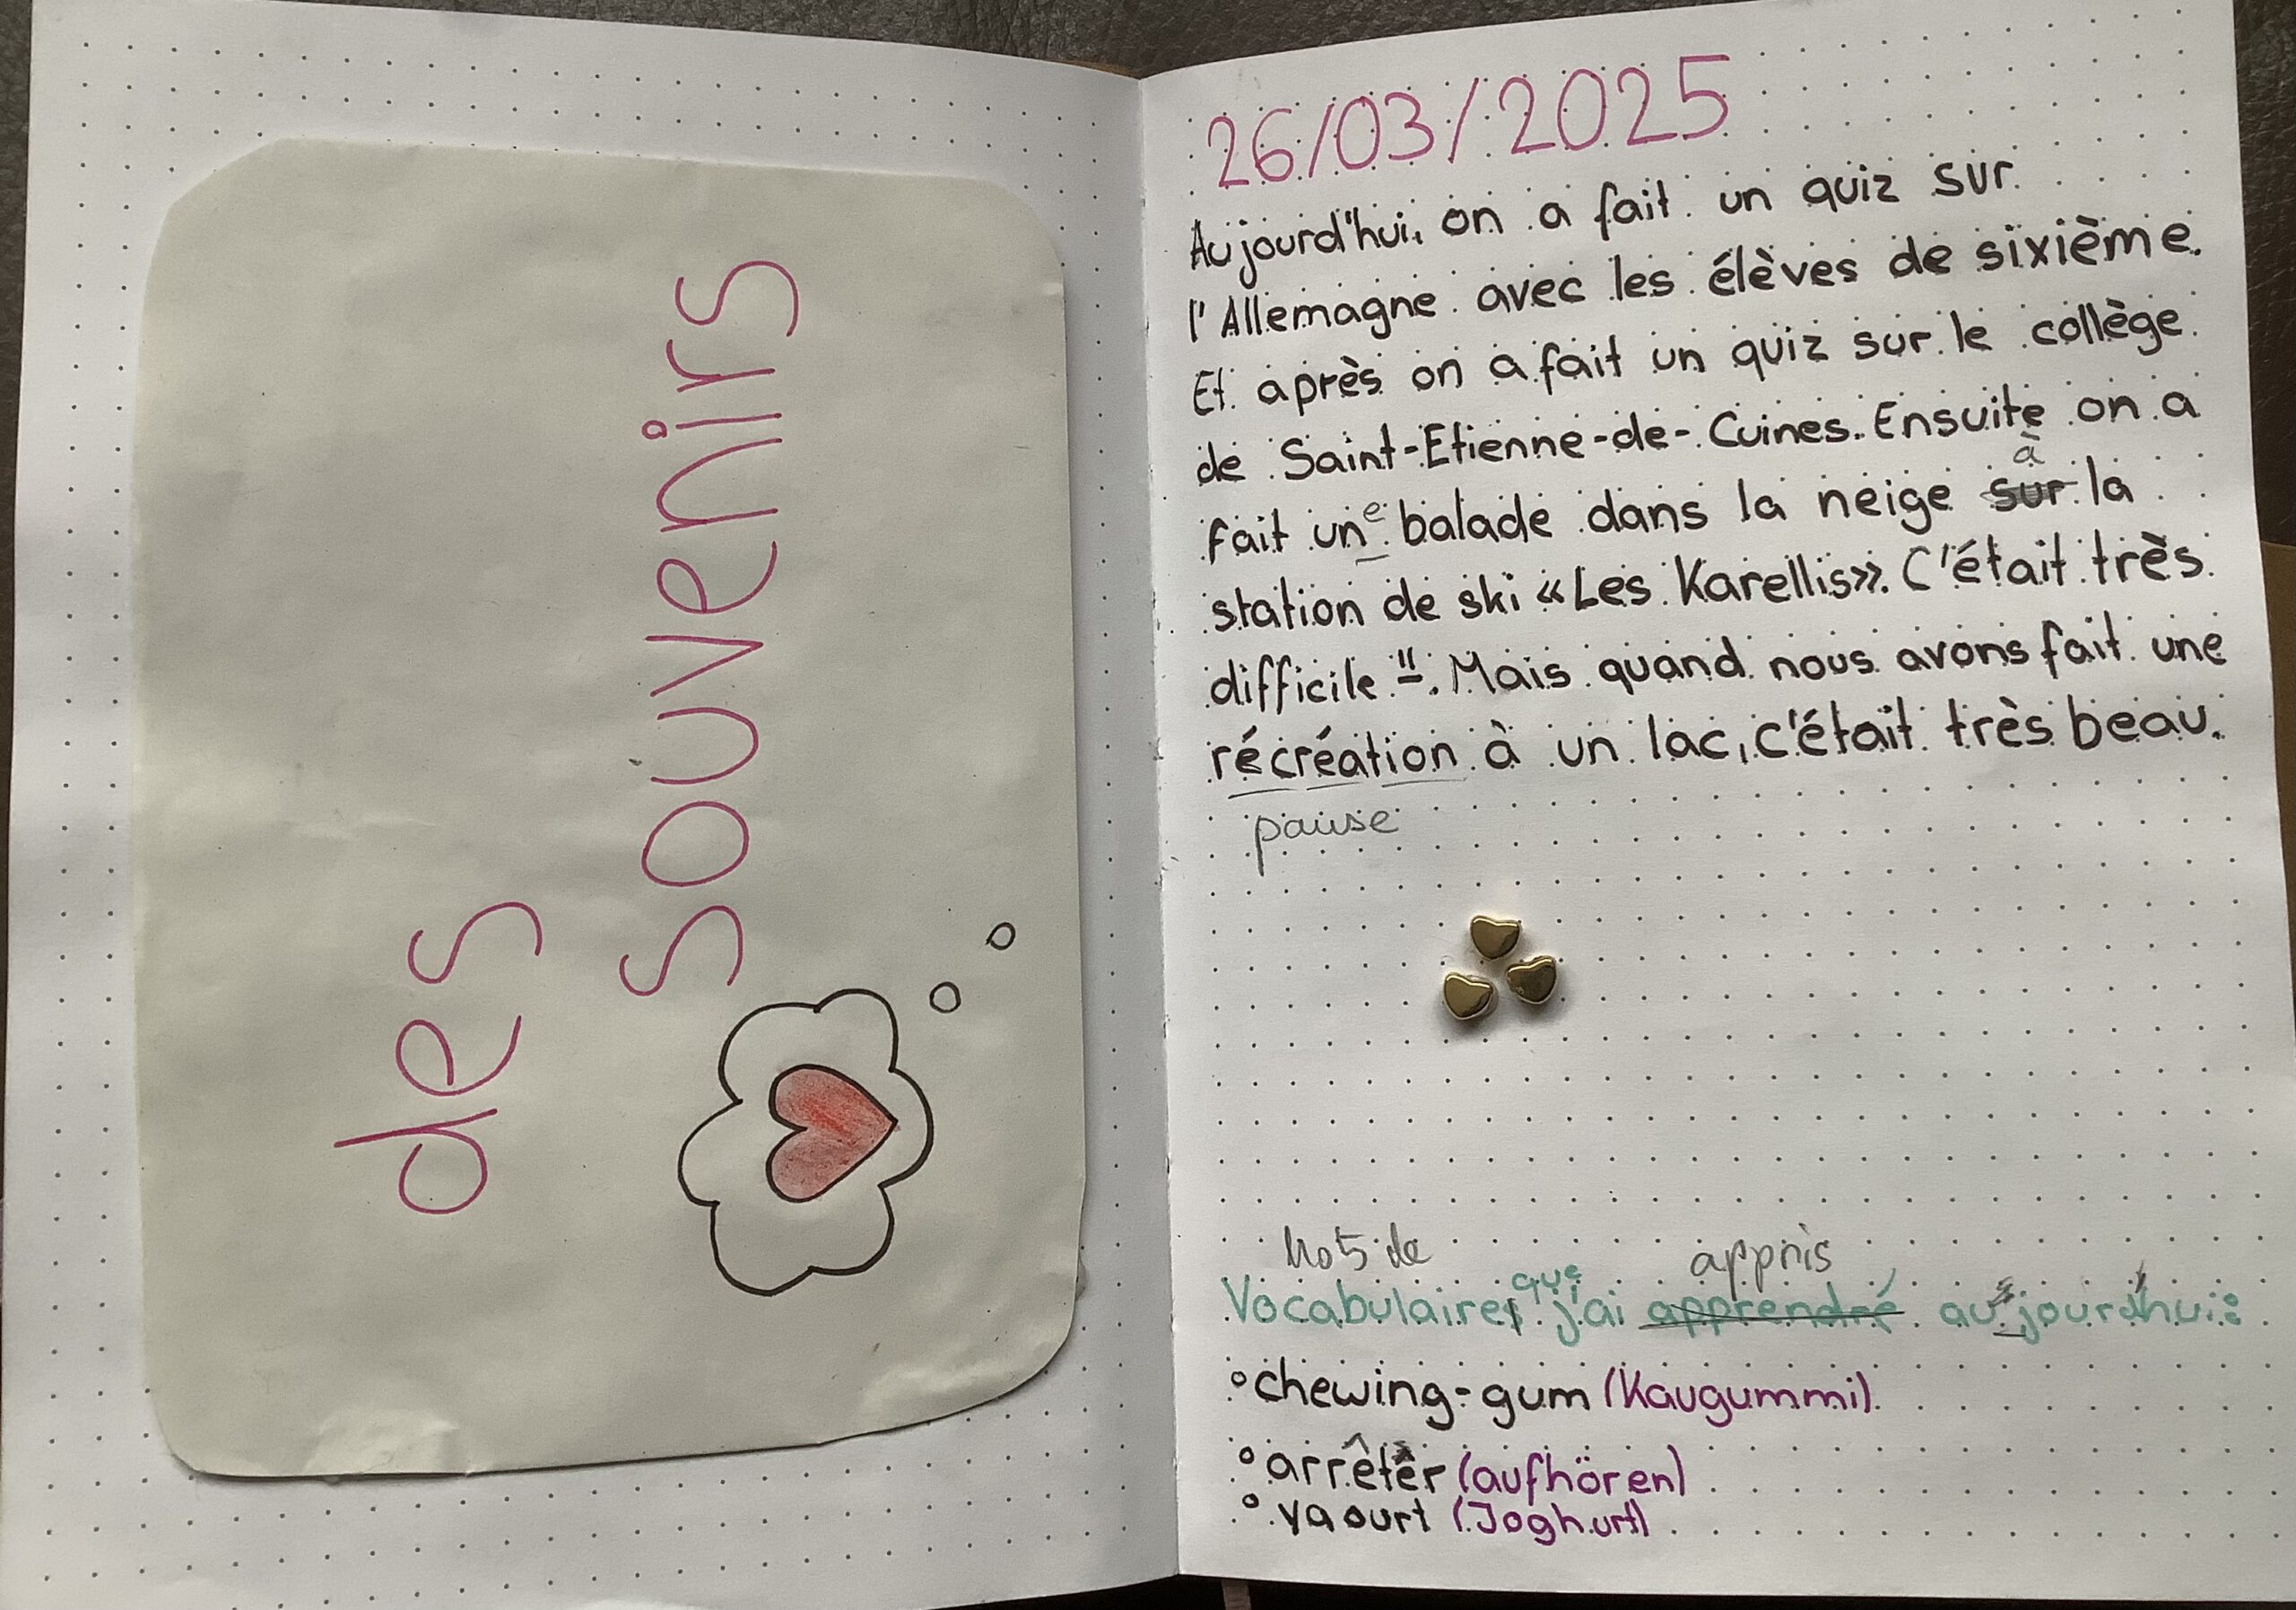 des
souvenirs
26/03/2025
Aujourd'hui, on a fait un quiz sur
l'Allemagne avec les élèves de sixième.
Et après on a fait un quiz sur le collège
de Saint-Etienne-de-Cuines. Ensuite on a
à
fait une balade dans la neige sur la
station de ski «Les Karellis». C'était très
difficile". Mais quand nous avons fait une
récréation à un lac, c'était très beau.
pause
Mots de que appris
Vocabulaire j'ai apprendré aujourd'hui:
chewing-gum (Kaugummi)
arrêter (aufhören)
yaourt (Joghurt)